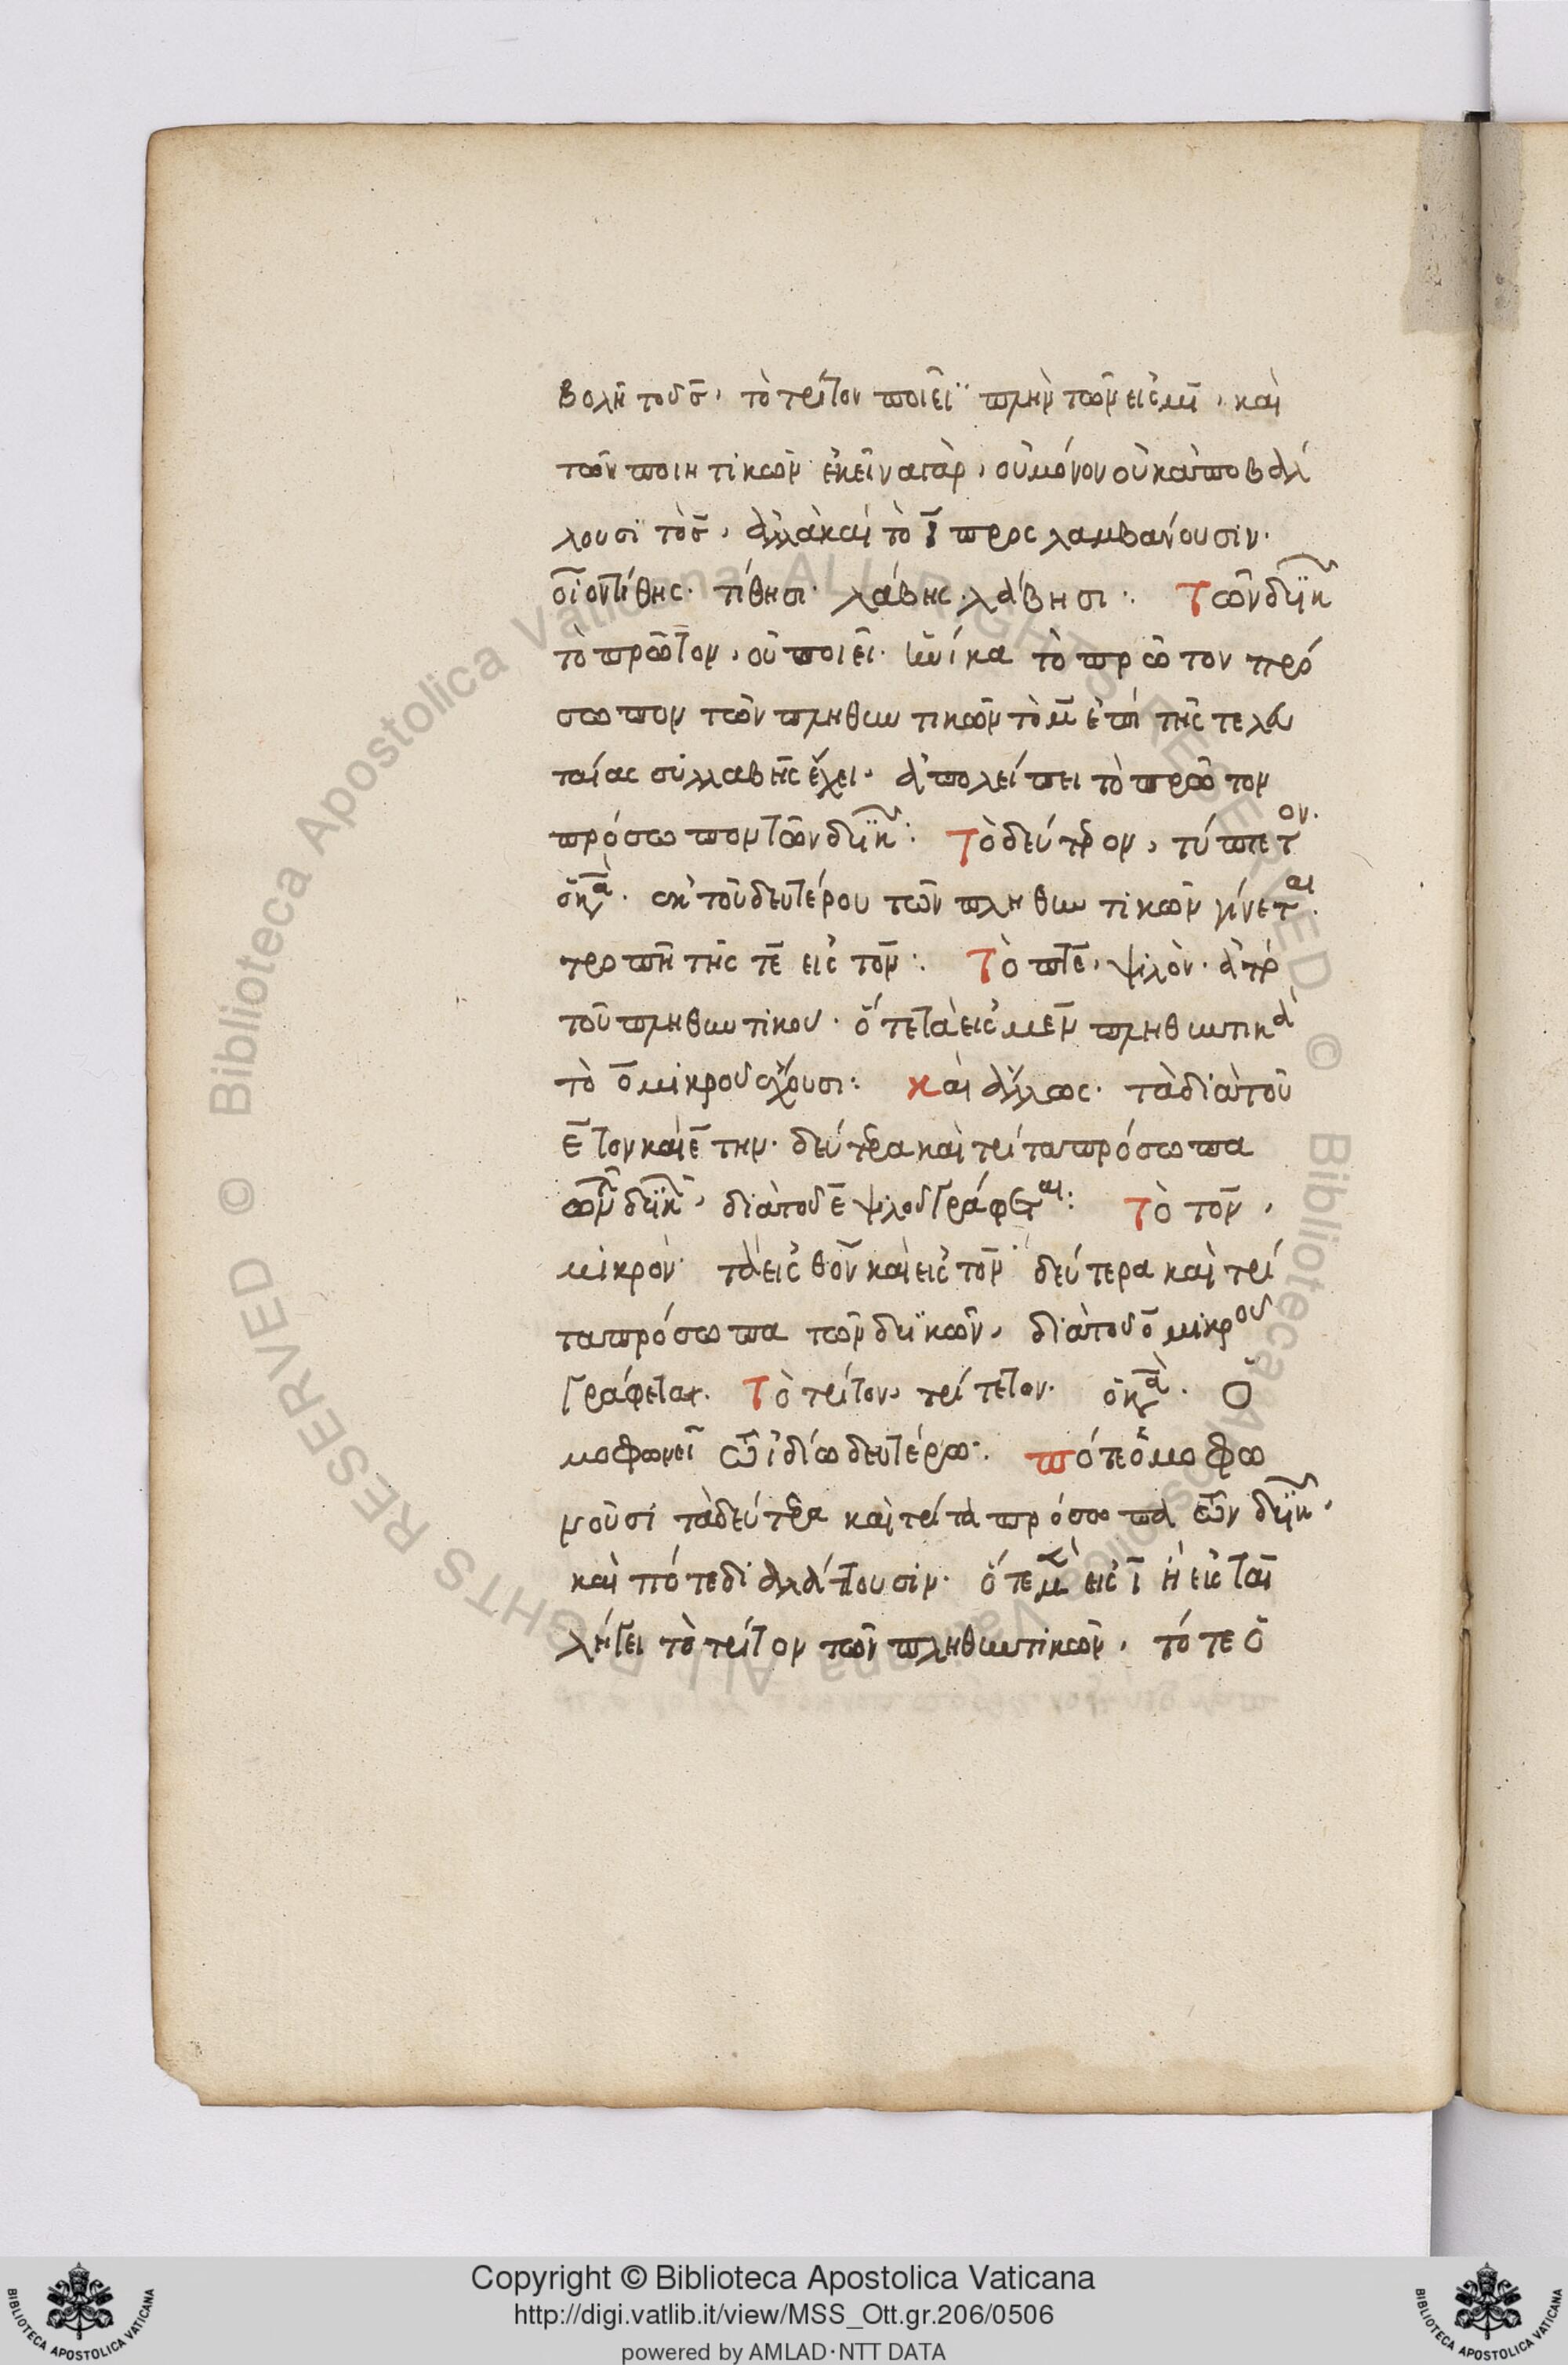 βολῆ τοῦ σ̅, τὸ τρίτον ποιεῖ πλὴν τῶν εἰς μι̅, καὶ
τῶν ποιητικῶν ἐκεῖνα γὰρ, οὐ μόνον οὐκ ἀποβάλ
λουσι τὸ σ̅, ἀλλὰ καὶ τὸ ι̅ προσλαμβάνουσιν.
οἷον τίθης. τίθησι. λάβης. λάβησι: Τῶν δυϊκ
τὸ πρῶτον, οὐ ποιεῖ. ἡνίκα τὸ πρῶτον πρό
σωπον τῶν πληθυντικῶν τὸ μ̅ ἐπὶ τῆς τελευ
ταίας συλλαβῆς ἔχει, ἀπολείπει τὸ πρῶτον
πρόσωπον τῶν δυϊκ: Τὸ δεύτερον, τύπετον.
ὁ κα. ἐκ τοῦ δευτέρου τῶν πληθυντικῶν γίνεται.
τροπῇ τῆς τε̅ εἰς το̅ν: Τὸ πτε̅, ψιλὸν.
τοῦ πληθυντικοῦ. ὅτε τὰ εἰς με̅ν πληθυντικὰ
τὸ ο̅ μικροῦ ἔχουσι: Καὶ ἄλλως. τὰ διὰ τοῦ
ε̅τον καὶ ε̅την. δεύτερα καὶ τρίτα πρόσωπα
τῶν δυϊκ, διὰ τοῦ ε̅ ψιλοῦ γράφεται: Τὸ το̅ν,
μικρὸν. τὰ εἰς θο̅ν καὶ εἰς το̅ν δεύτερα καὶ τρί
τα πρόσωπα τῶν δυϊκῶν, διὰ τοῦ ο̅ μικροῦ
γράφεται. Τὸ τρίτον, τύπετον. ὁ κα. ὁ
μοφωνεῖ τῷ ἰδίῳ δευτέρῳ. Πότε ὁμοφω
νοῦσι τὰ δεύτερα καὶ τρίτα πρόσωπα τῶν δυϊκ,
καὶ πότε διαλλάττουσιν. ὅτε μὲν εἰς ι̅ ἢ εἰς ται̅
λήγει τὸ τρίτον τῶν πληθυντικῶν, τότε ὁ
Copyright © Biblioteca Apostolica Vaticana
http://digi.vatlib.it/view/MSS_Ott.gr.206/0506
powered by AMLAD·NTT DATA